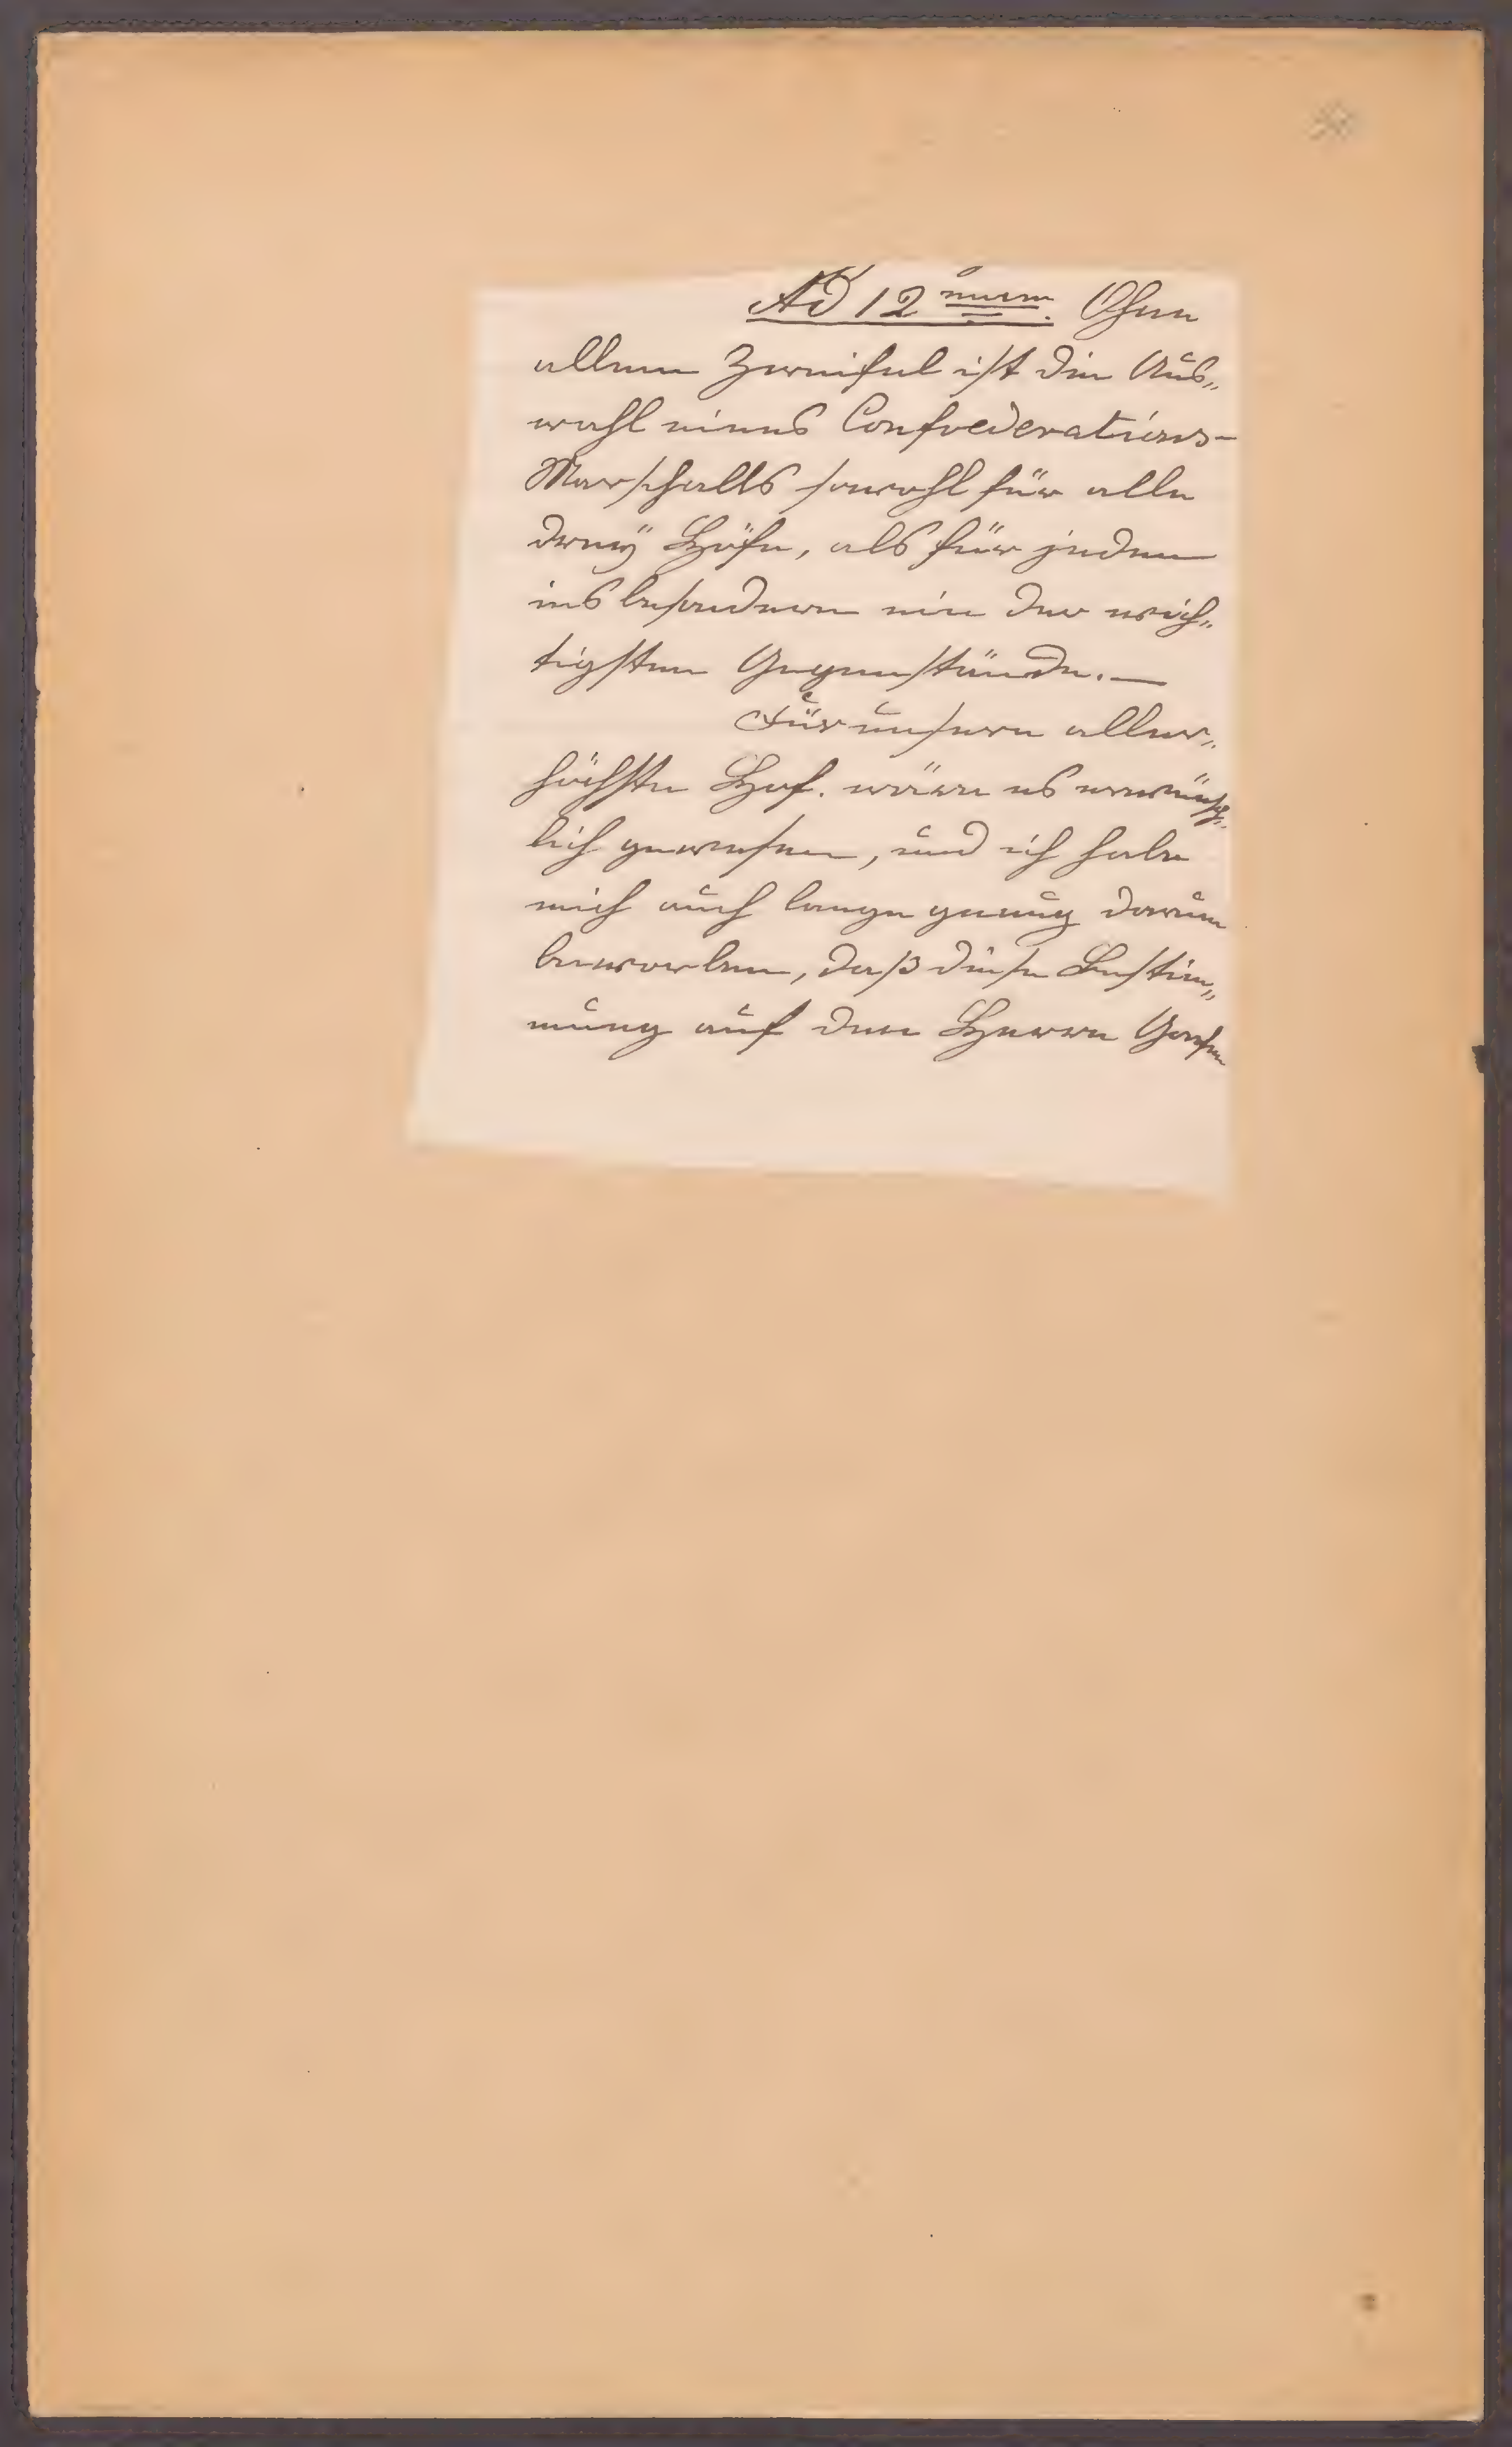 Ad 12 mum. Ohne
allem Zweifel ist die Aus„
wahl eines Confoederations-
Marschalls sowohl für alle
dreÿ Höfe, als für jeden
ins besondere ein der wich„
tigsten Gegenstände. —
Für unsern aller„
höchste Hof. wäre es erwünsch„
lich gewesen, und ich habe
mich auch lange genug darum
beworben, daß diese Bestim„
mung auf den Herrn Grafen